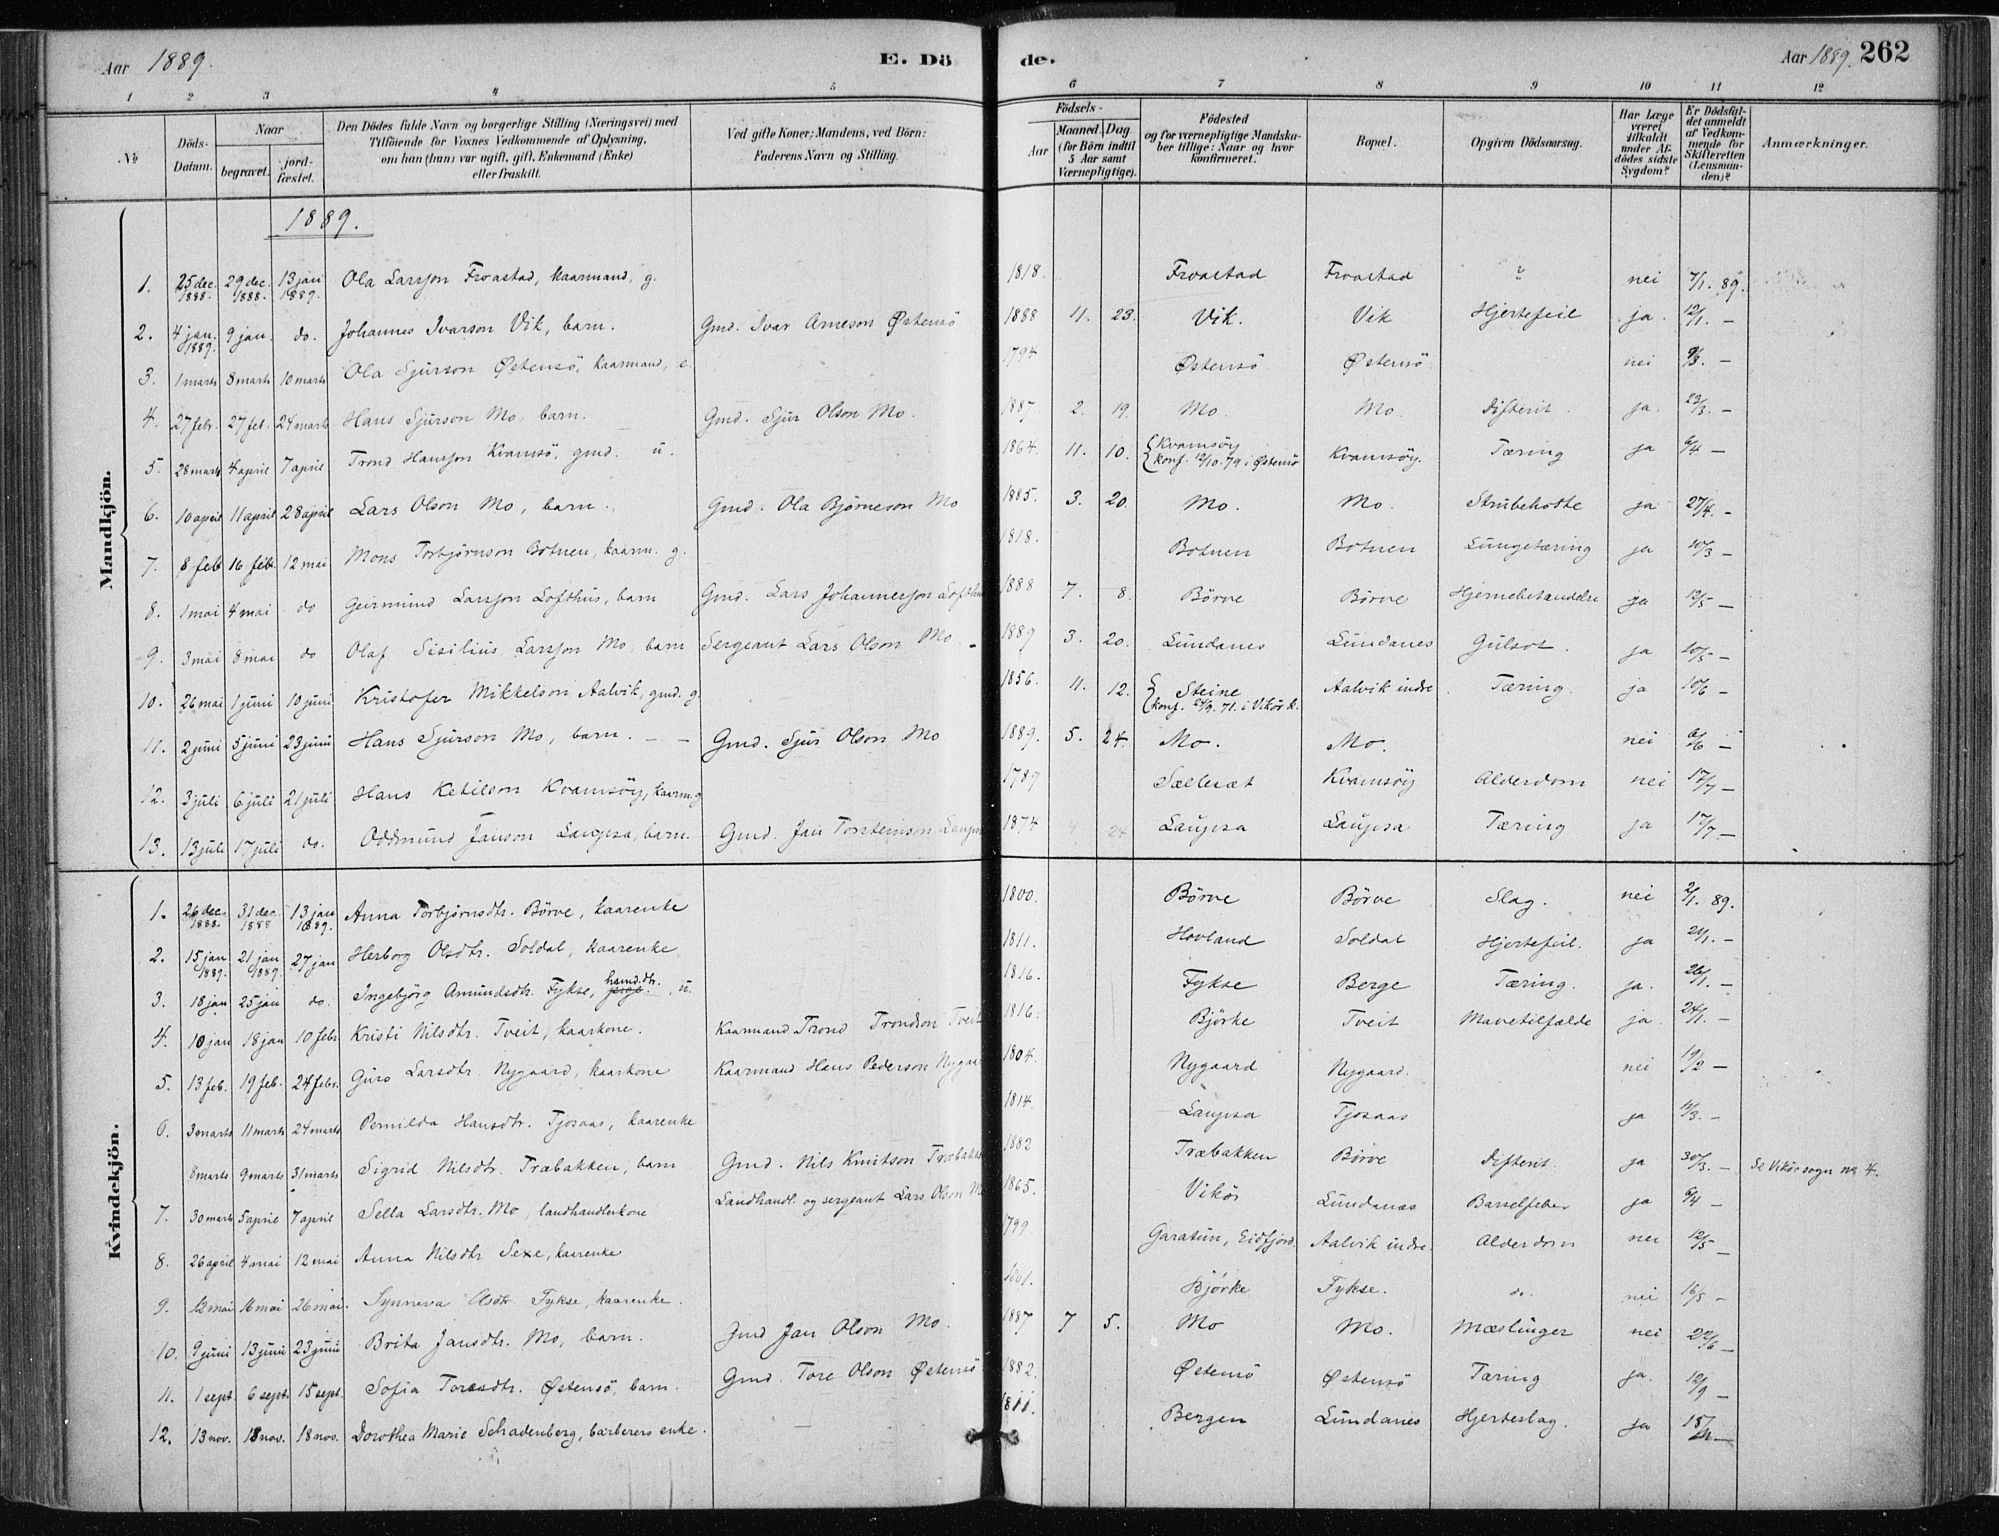 Aar 1889. E. Dö de. Aar 1889. 262
1 2 3 4 5 6 7 8 9 10 11 12
No
Döds-Datum.
Naar
begravet. jord-fæstet.
Den Dödes fulde Navn og borgerlige Stilling (Næringsvei) med
Tilföiende for Voxnes Vedkommende af Oplysning,
om han (hun) var ugift, gift, Enkemand (Enke)
eller fraskilt.
Ved gifte Koner: Mandens, ved Börn:
Faderens Navn og Stilling.
Födsels-
Aar Maaned. Dag
(for Börn indtil
5 Aar samt
Værnepligtige).
Födested
og for værnepligtige Mandska-
ber tillige: Naar og hvor
konfirmeret.
Bopæl.
Opgiven Dödsaarsag.
Har Læge
været
tilkaldt
under Af-
dödes sidste
Sygdom?
Er Dödsfal-
det anmeldt
af Vedkom-
mende for
Skifteretten
(Lensman-
den)?
Anmærkninger.
Mandkjön.
1889.
1. 25 dec. 1888. 29 dec. 1888. 13 jan 1889. Ola Larsson Froastad, kaarmand, g. 1818. Froastad Froastad " nei 7/1. 89.
2. 4 jan. 1889. 9 jan. do. Johannes Ivarson Vik, barn. Gmd. Ivar Arneson Østensö 1888 11. 23. Vik. Vik Hjertefeil ja. 12/1. –
3. 1 marts 8 marts 10 marts Ola Sjurson Østensö, kaarmand, e. 1794 Østensö Østensö nei 9/3. –
4. 27 febr. 27 feb. 24 marts Hans Sjurson Mo, barn. – Gmd. Sjur Olson Mo. 1887. 2. 19. Mo. Mo. Difterit. ja. 23/3. –
5. 28 marts 4 april 7 april Trond Hansson Kvamsö, gmd. u. 1864. 11. 10. Kvamsöy konf. 12/10. 79. i Østensö Kvamsöy. Tæring ja 6/4 –
6. 10 april 11 april 28 april Lars Olson Mo, barn. Gmd. Ola Bjørneson Mo 1885. 3. 20. Mo. Mo. Strubehoste ja 27/4. –
7. 8 feb 16 feb. 12 mai Mons Torbjørnson Botnen, kaarm. g. 1818. Botnen Botnen Lungetæring ja 10/3 –
8. 1 mai 4 mai do Geirmund Larsson Lofthus, barn Gmd. Lars Johannesson Lofthus 1888 7. 8. Börve Börve Hjernebetændelse ja 12/5 –
9. 3 mai 8 mai do Olaf Sisilius Larsson Mo, barn Sergeant Lars Olson Mo. 1889 3. 20. Lundanes Lundanes Gulsot. ja 10/5 –
10. 26 mai 1 juni 10 juni Kristofer Mikkelson Aalvik, gmd. g. 1856. 11. 12. Steine konf. 24/9. 71. i Vikör k. Aalvik indre. Tæring. ja 10/6 –
11. 2 juni 5 juni 23 juni Hans Sjurson Mo, barn. – – Gmd. Sjur Olson Mo 1889. 5. 24. Mo. Mo. nei 6/6 –
12. 3 juli 6 juli 21 juli Hans Ketilson Kvamsöy, kaarm. g 1789 Sælleset Kvamsöy Alderdom nei 17/7 –
13. 13 juli 17 juli do. Oddmund Janson Laupsa, barn. Gmd. Jan Torsteinson Laupsa 1874 4. 24 Laupsa Laupsa Tæring ja 17/7 –
Kvindekjön.
1. 26 dec. 1888. 31 dec. 1888 13 jan 1889. Anna Torbjørnsdtr. Börve, kaarenke 1800. Börve Börve Slag. nei 2/1. 89.
2. 15 jan 1889. 21 jan 1889. 27 jan Herborg Olsdtr. Soldal, kaarenke 1811. Hovland Soldal Hjertefeil. ja 21/1. –
3. 18 jan 25 jan do. Ingebjörg Amundsdtr. Fykse, husmd.dtr., u. 1816. Fykse Berge Tæring. ja. 26/1. –
4. 10 jan 18 jan 10 febr Kristi Nilsdtr. Tveit, kaarkone. Kaarmand Trond Trondson Tveit 1816. Björke Tveit Mavetilfælde ja. 24/1. –
5. 13 feb. 19 feb. 24 febr. Guro Larsdtr. Nygaard, kaarkone Kaarmand Hans Pederson Nygaa 1804. Nygaard Nygaard. nei 19/2 –
6. 3 marts 11 marts 24 marts Pernilda Hansdtr. Tjosaas, kaarenke 1814. Laupsa Tjosaas ja 11/3. –
8 marts 9 marts 31 marts Sigrid Nilsdtr. Træbakken, barn Gmd. Nils Knutson Træbakke 1882 Træbakken Börve Difterit. ja 30/3. – Se Vikör sogn no 4.
7. 30 marts 5 april 7 april Sella Larsdtr. Mo, landhandlerkone Landhandl. og sergeant Lars Olson Mo 1865. Vikör Lundanæs Barselfeber ja 6/4 –
8. 26 april 4 mai 12 mai Anna Nilsdtr Sexe, kaarenke 1799. Garatun, Eidfjord. Aalvik indre. Alderdom nei 12/5 –
9. 12 mai 16 mai 26 mai. Synneva Olsdtr. Fykse, kaarenke. 1801. Bjørke Fykse. do. nei 16/5 –
10. 9 juni 13 juni 23 juni Brita Jansdtr. Mo, barn. Gmd Jan Olson Mo. 1887 7 5. Mo Mo. Mæslinger nei 22/6 –
11. 1 sept. 6 sept. 15 sept. Sofia Toresdtr. Østensö, barn. Gmd. Tore Olson Østensö 1882. Østensö Østensö Tæring ja. 12/9 –
12. 13 nov. 18 nov. 18 nov. Dorothea Marie Schadenberg, barberers enke. 1811. Bergen Lundanes Hjerteslag. ja 18/11 –